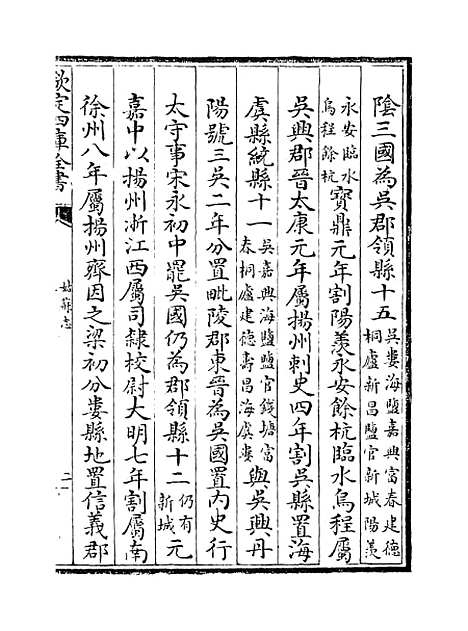 陰三國為吳郡領縣十五吳婁海鹽嘉興富春建德桐廬新昌鹽官新城陽羨
永安臨水烏程餘杭寶鼎元年割陽羨永安餘杭臨水烏程屬
吳興郡晉太康元年屬揚州刺史四年割吳縣置海
虞縣統縣十一吳嘉興海鹽鹽官錢塘富春桐廬建德壽昌海虞婁與吳興丹
陽號三吳二年分置毗陵郡東晉為吳國置內史行
太守事宋永初中罷吳國仍為郡領縣十二仍有新城元
嘉中以揚州浙江西屬司隸校尉大明七年割屬南
徐州八年屬揚州齊因之梁初分婁縣地置信義郡
欽定四庫全書
姑蘇志
二